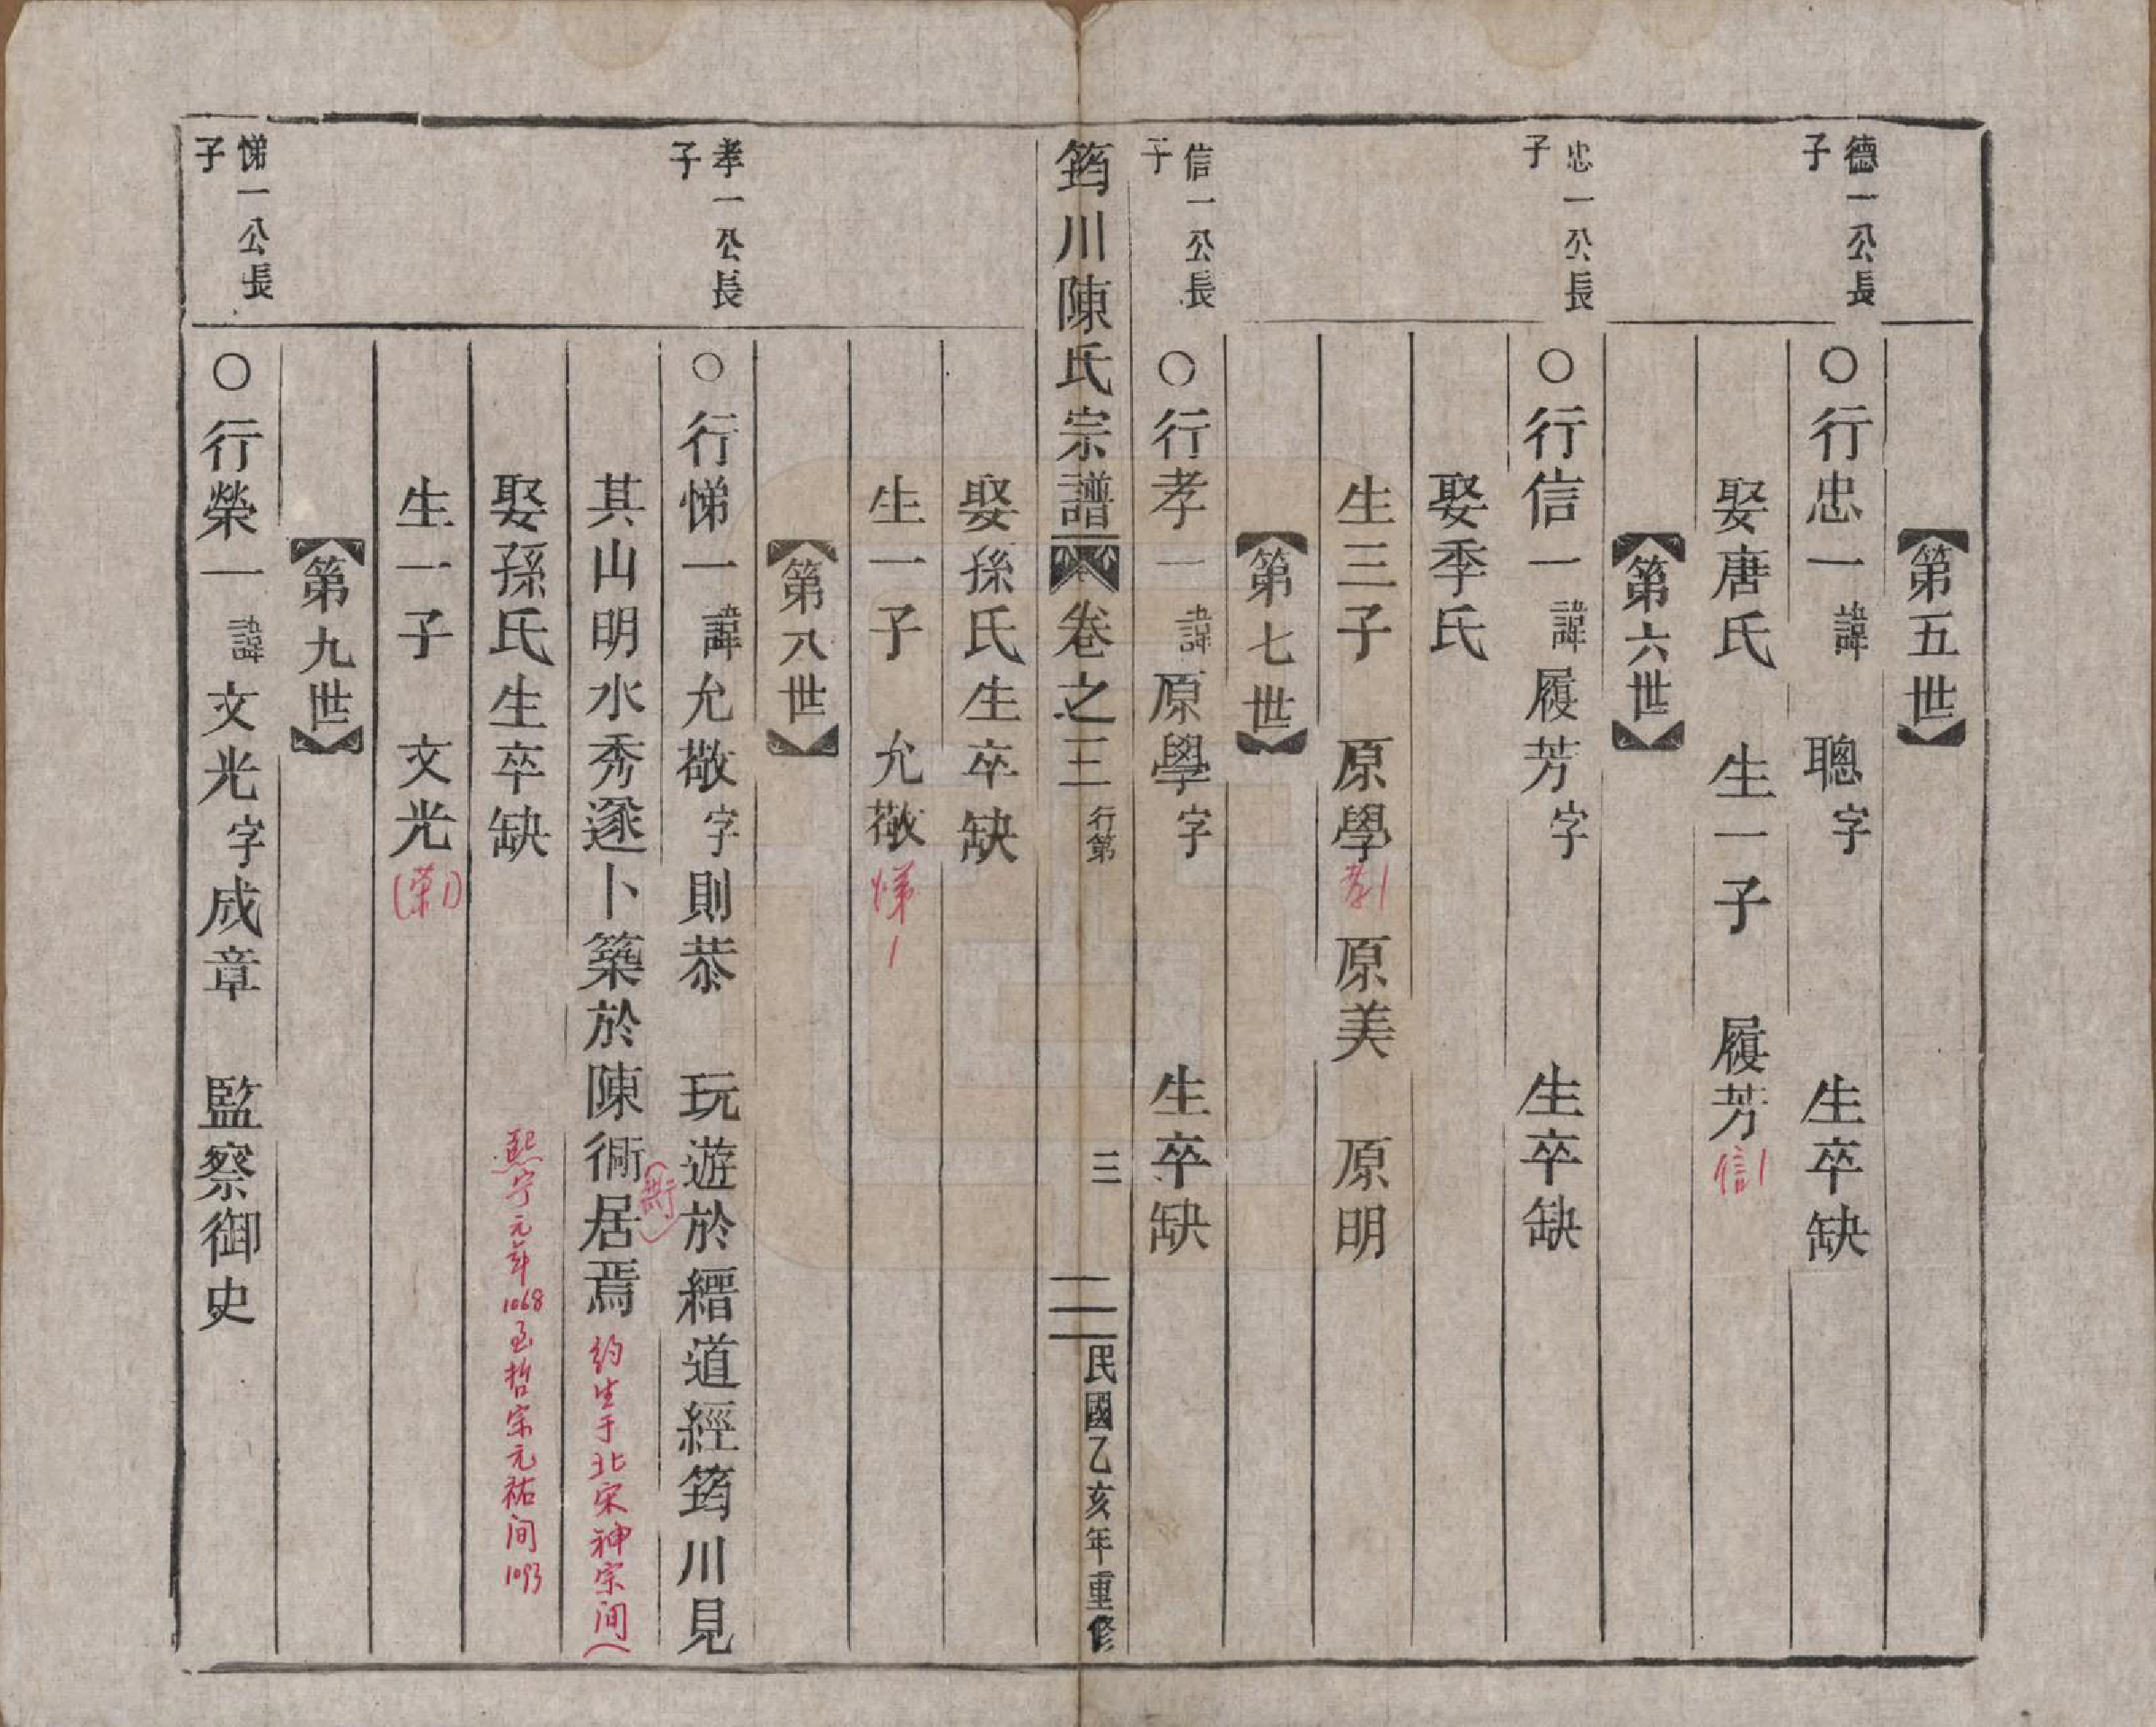 【第五世】
德一公長子
○行忠一 諱 聰 字 生卒缺
娶唐氏 生一子 履芳 信1
【第六世】
忠一公長子
○行信一 諱 履芳 字 生卒缺
娶季氏
生三子 原學 孝1 原美 原明
【第七世】
信一公長子
○行孝一 諱 原學 字 生卒缺
筠川陳氏宗譜 卷之三 行第 三 民國乙亥年重修
娶孫氏生卒缺
生一子 允敬 悌1
【第八世】
孝一公長子
○行悌一 諱 允敬 字 則恭 玩遊於縉道經筠川見
其山明水秀遂卜築於陳衕居焉 (衖) 約生于北宋神宗间)
娶孫氏生卒缺 熙宁元年1068至哲宗元祐间1093
生一子 文光 (荣1)
【第九世】
悌一公長子
○行榮一 諱 文光 字 成章 監察御史